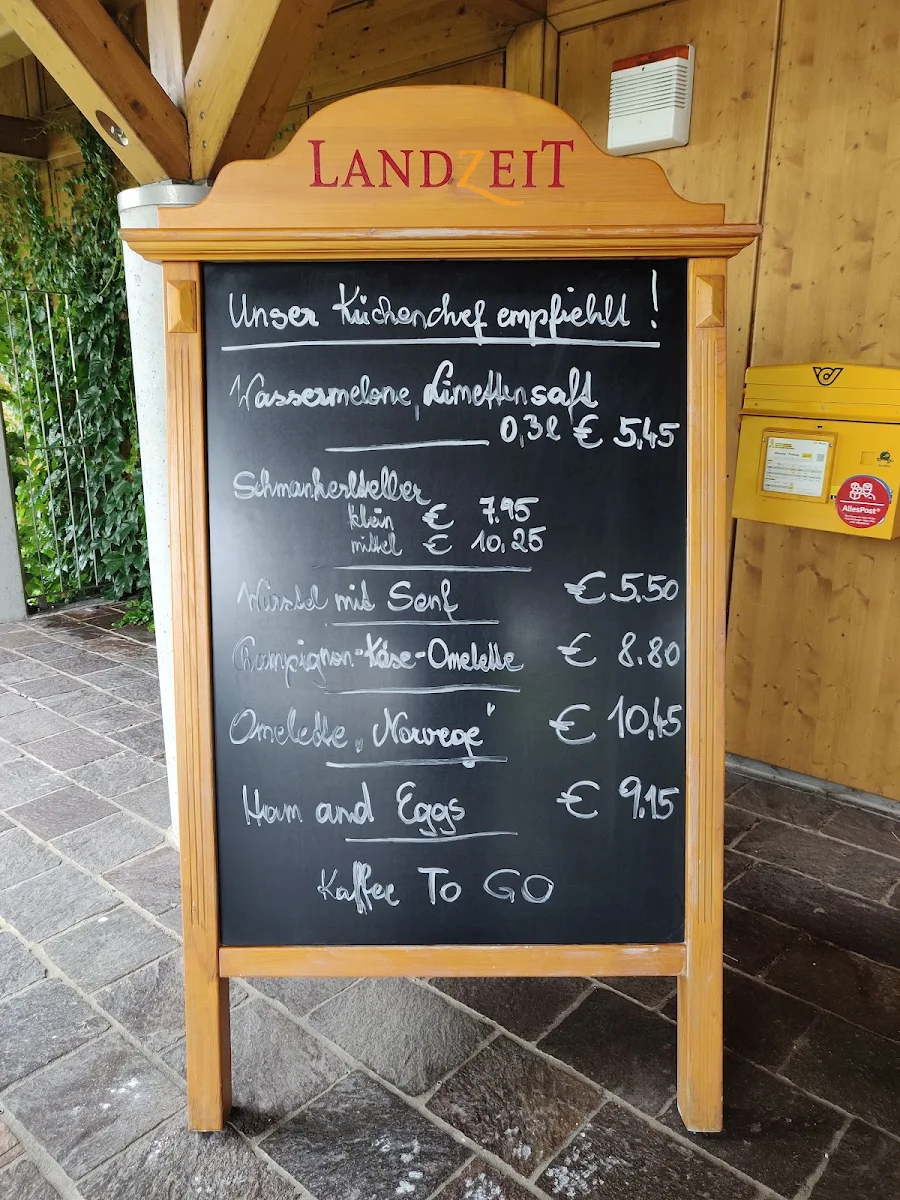 LANDZEIT
Unser Küchenchef empfiehlt !
Wassermelone, Limettensaft
0,3l € 5,45
Schmankerlteller
klein € 7.95
mittel € 10,25
Würstel mit Senf € 5.50
Champignon-Käse-Omelette € 8.80
Omelette „Norwege" € 10,45
Ham and Eggs € 9.15
Kaffee To GO
AllesPost